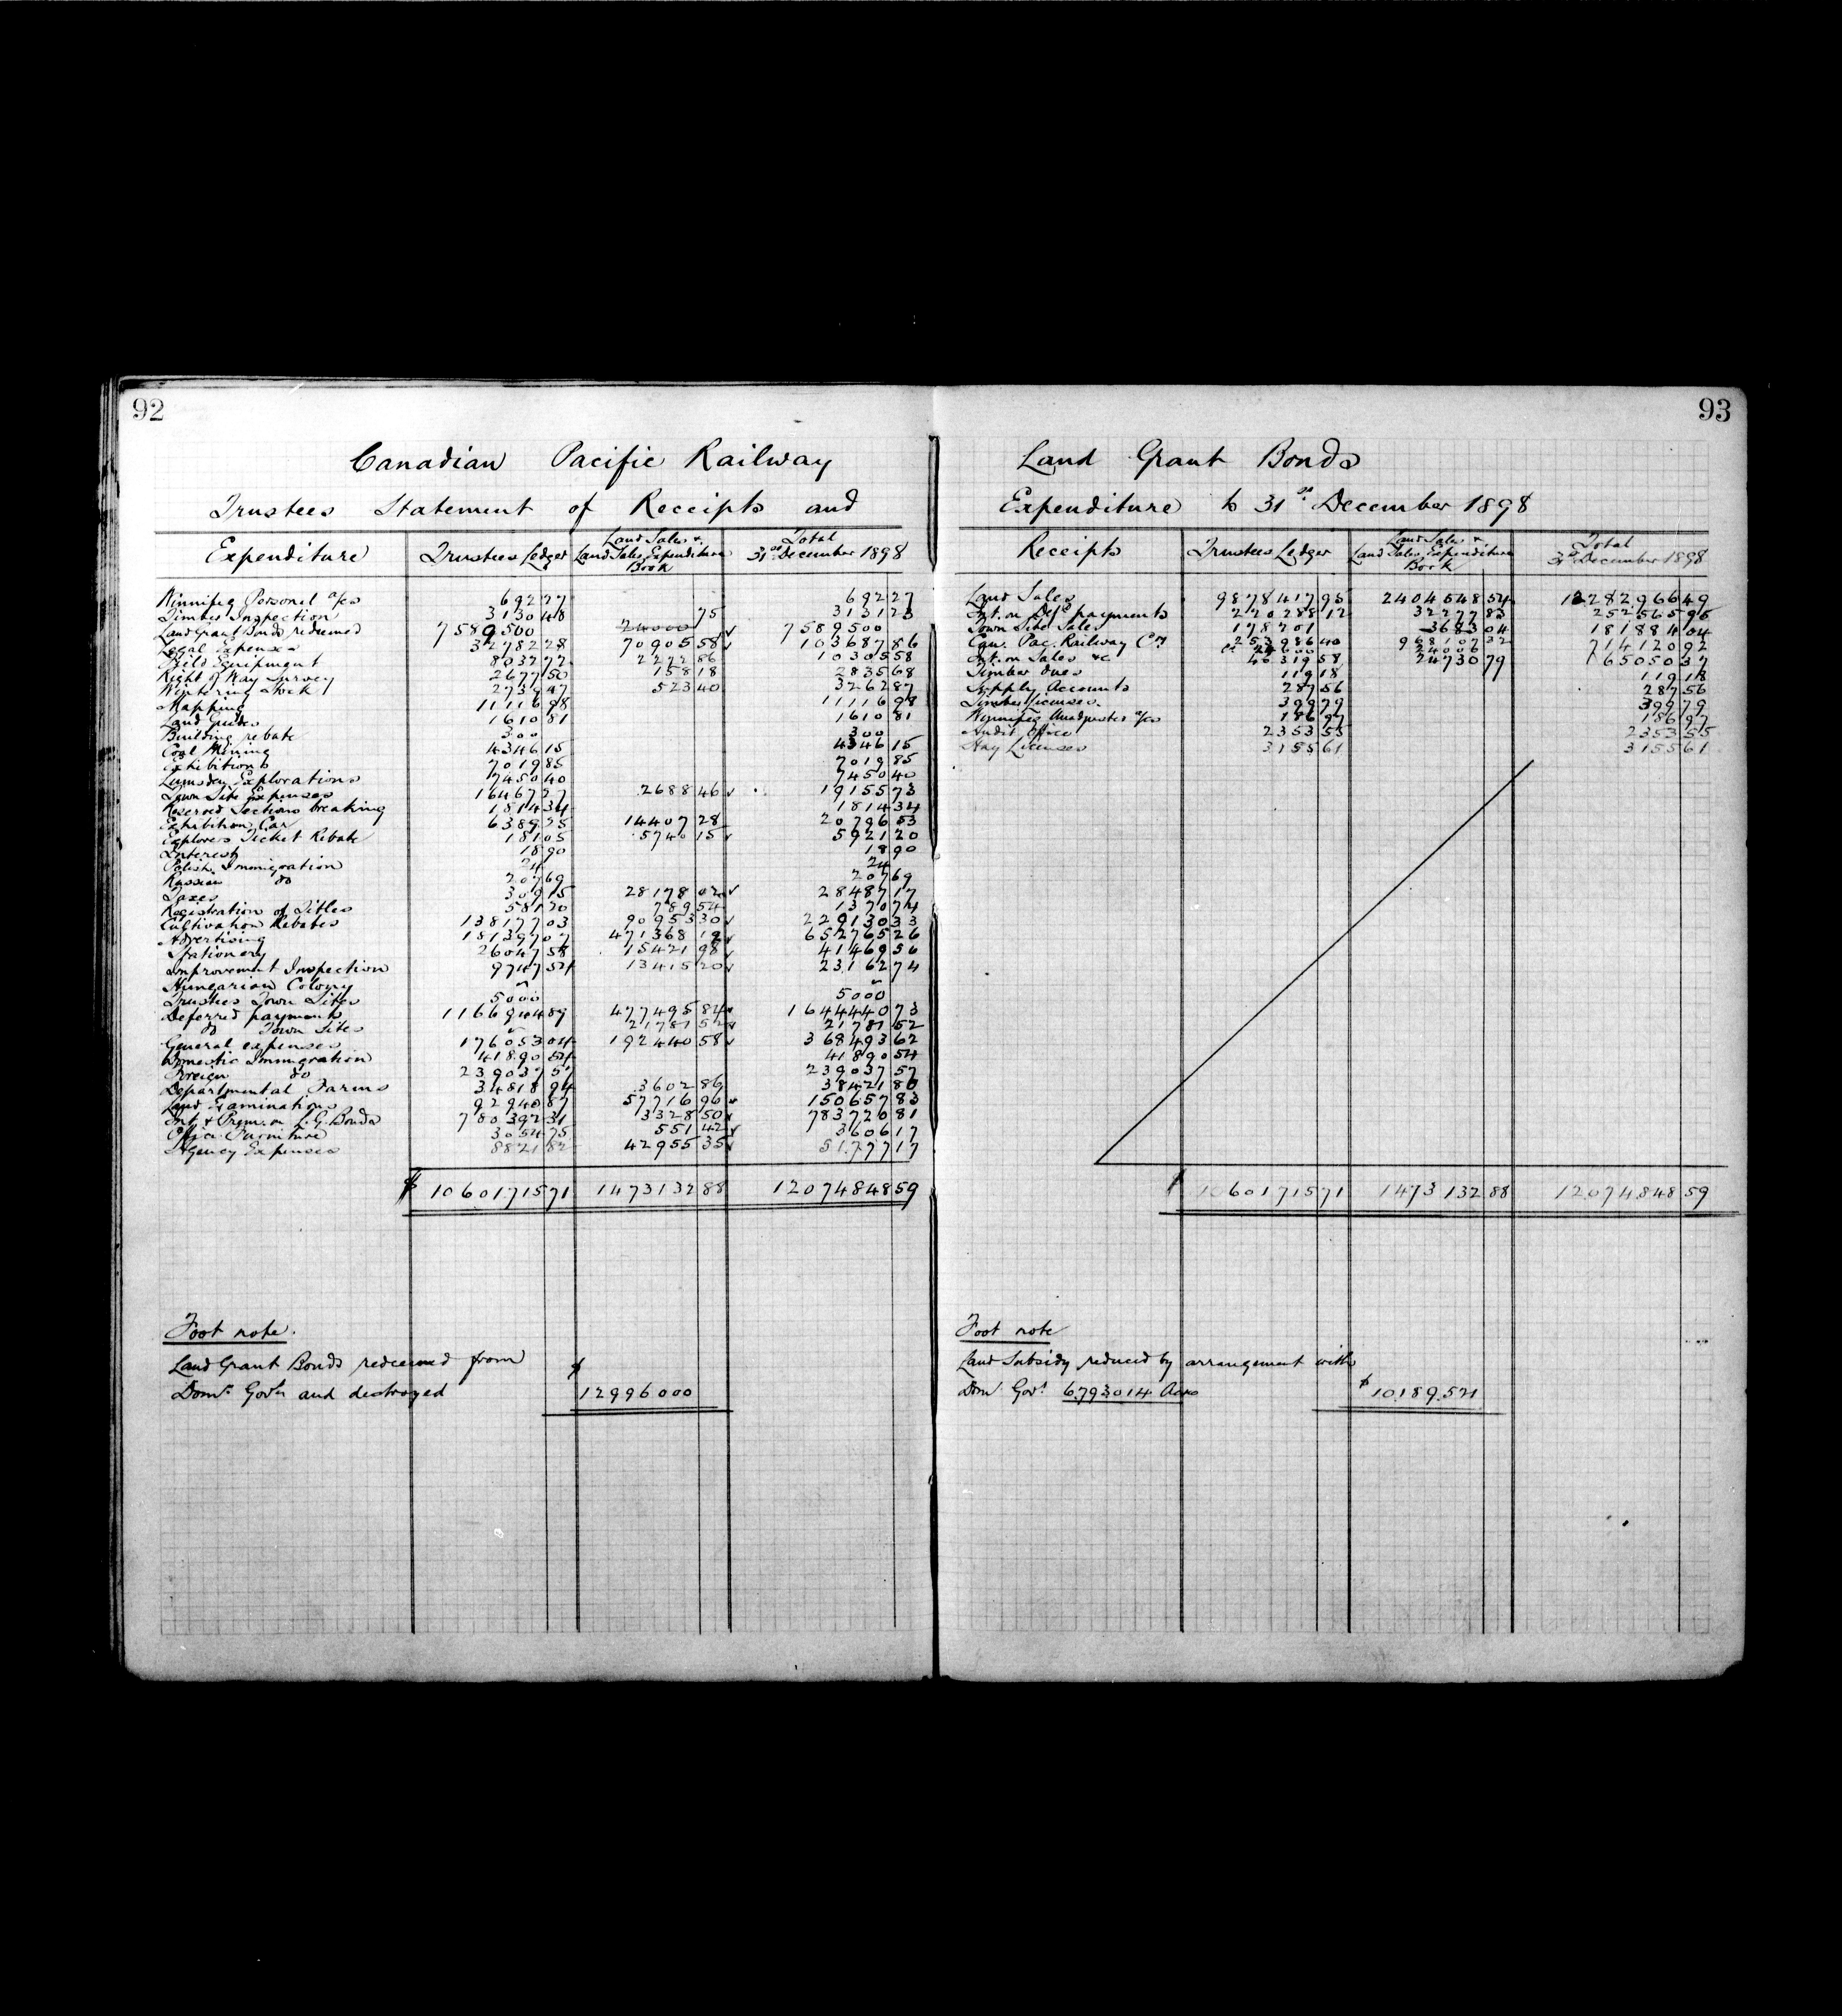 92
Canadian Pacific Railway
Trustees Statement of Receipts and
Expenditure Trustees Ledger Land Sales & Land Sales Expenditure Book Total 31st December 1898
Winnipeg Personal a/cs 692 27 692 27
Timber Inspection 3130 48 75 3131 23
Land Grant Bonds redeemed 7589500 24000 7589500
Legal Expenses 32782 28 70905 58 103687 86
Field Equipment 8032 72 2272 86 10305 58
Right of Way Survey 2677 50 158 18 2835 68
Wintering Stock 2739 47 523 40 3262 87
Mapping 11116 98 11116 98
Land Guides 1610 81 1610 81
Building rebate 300 300
Coal Mining 4346 15 4346 15
Exhibitions 7019 85 7019 85
Lumsden Explorations 7450 40 7450 40
Town Site Expenses 16467 27 2688 46 19155 73
Reserved Sections breaking 1814 34 1814 34
Exhibition Car 6389 25 14407 28 20796 53
Explorers Ticket Rebate 181 05 5740 15 5921 20
Interest 18 90 18 90
Polish Immigration 24 24
Russian do 207 69 207 69
Taxes 309 15 28178 02 28487 17
Registration of Titles 581 20 789 54 1370 74
Cultivation Rebates 138177 03 90953 30 229130 33
Advertising 181397 07 471368 19 652765 26
Stationery 26047 58 15421 98 41469 56
Improvement Inspection 9747 54 13415 20 23162 74
Hungarian Colony
Trustees Town Sites 5000 5000
Deferred payments 1166944 89 477495 84 1644440 73
do Town Sites 21781 52 21781 52
General expenses 176053 04 192440 58 368493 62
Domestic Immigration 41890 54 41890 54
Foreign do 239037 57 239037 57
Departmental Farms 34818 94 3602 86 38421 80
Land Examinations 92940 87 57716 96 150657 83
Int. & Prem. on L.G. Bonds 780392 31 3328 50 783720 81
Office Furniture 3054 75 551 42 3606 17
Agency Expenses 8821 82 42955 35 51777 17
$ 10601715 71 1473132 88 12074848 59
Foot note.
Land Grant Bonds redeemed from $
Domn. Govt. and destroyed 12996000
93
Land Grant Bonds
Expenditure to 31st December 1898
Receipts Trustees Ledger Land Sales & Land Sales Expenditure Book Total 31st December 1898
Land Sales 9878417 95 2404548 54 12282966 49
Int. on Defd payments 220288 12 32277 83 252565 95
Town Site Sales 178201 3683 04 181884 04
Can. Pac. Railway Coy 253986 40 968107 32 714120 92
Int. on Sales &c 40319 58 24730 79 65050 37
Timber dues 119 18 119 18
Supply Accounts 287 56 287 56
Timber Licenses. 399 79 399 79
Winnipeg Headquarters a/cs 186 97 186 97
Audit Office 2353 55 2353 55
Hay Licenses 3155 61 3155 61
$ 10601715 71 1473132 88 12074848 59
Foot note
Land Subsidy reduced by arrangement with
Dom. Govt. 6.793.014 Acres $ 10.189.521